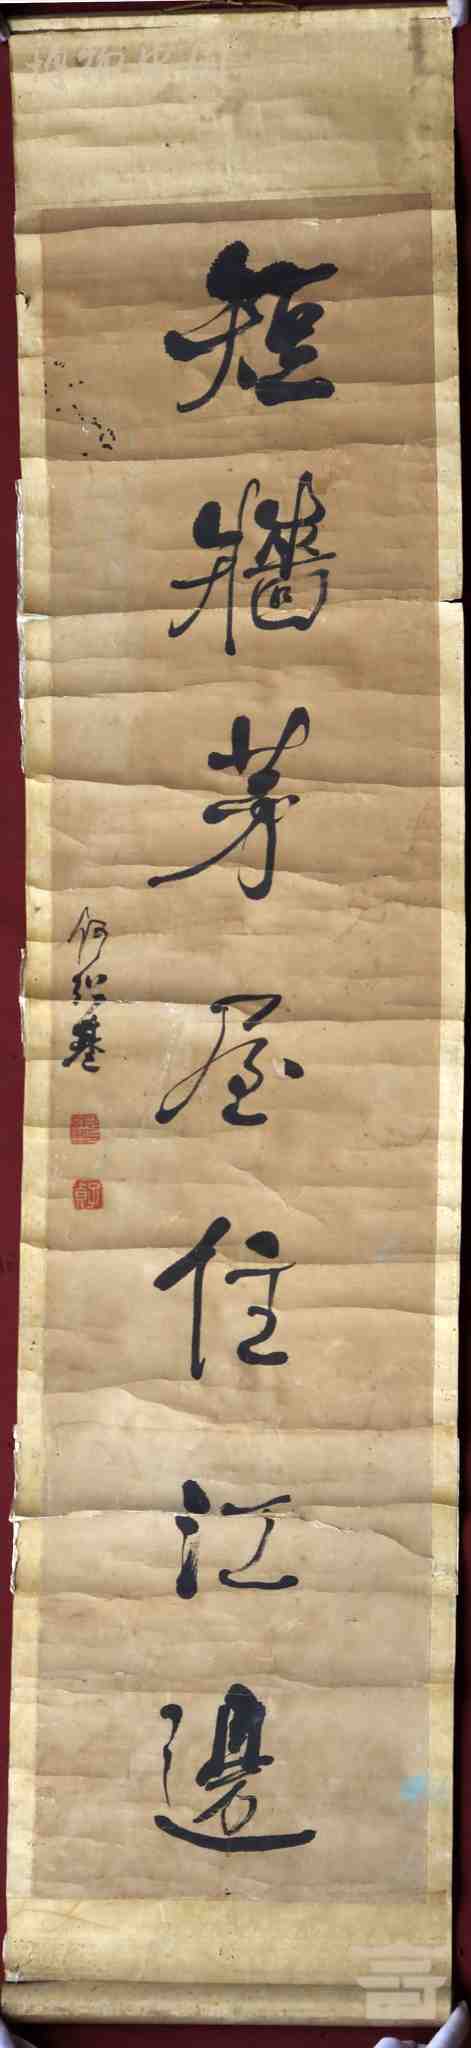 短牆茅屋住江邊
何紹基
子貞